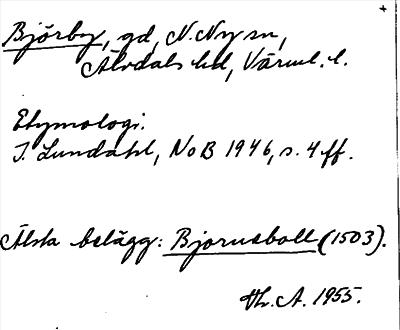 +
Björby, gd, N. Ny sn,
Älvdals hd, Värml. l.
Etymologi.
I. Lundahl, NoB 1946, s. 4 ff.
Älsta belägg: Bjornaboll (1503).
Th. A. 1955.